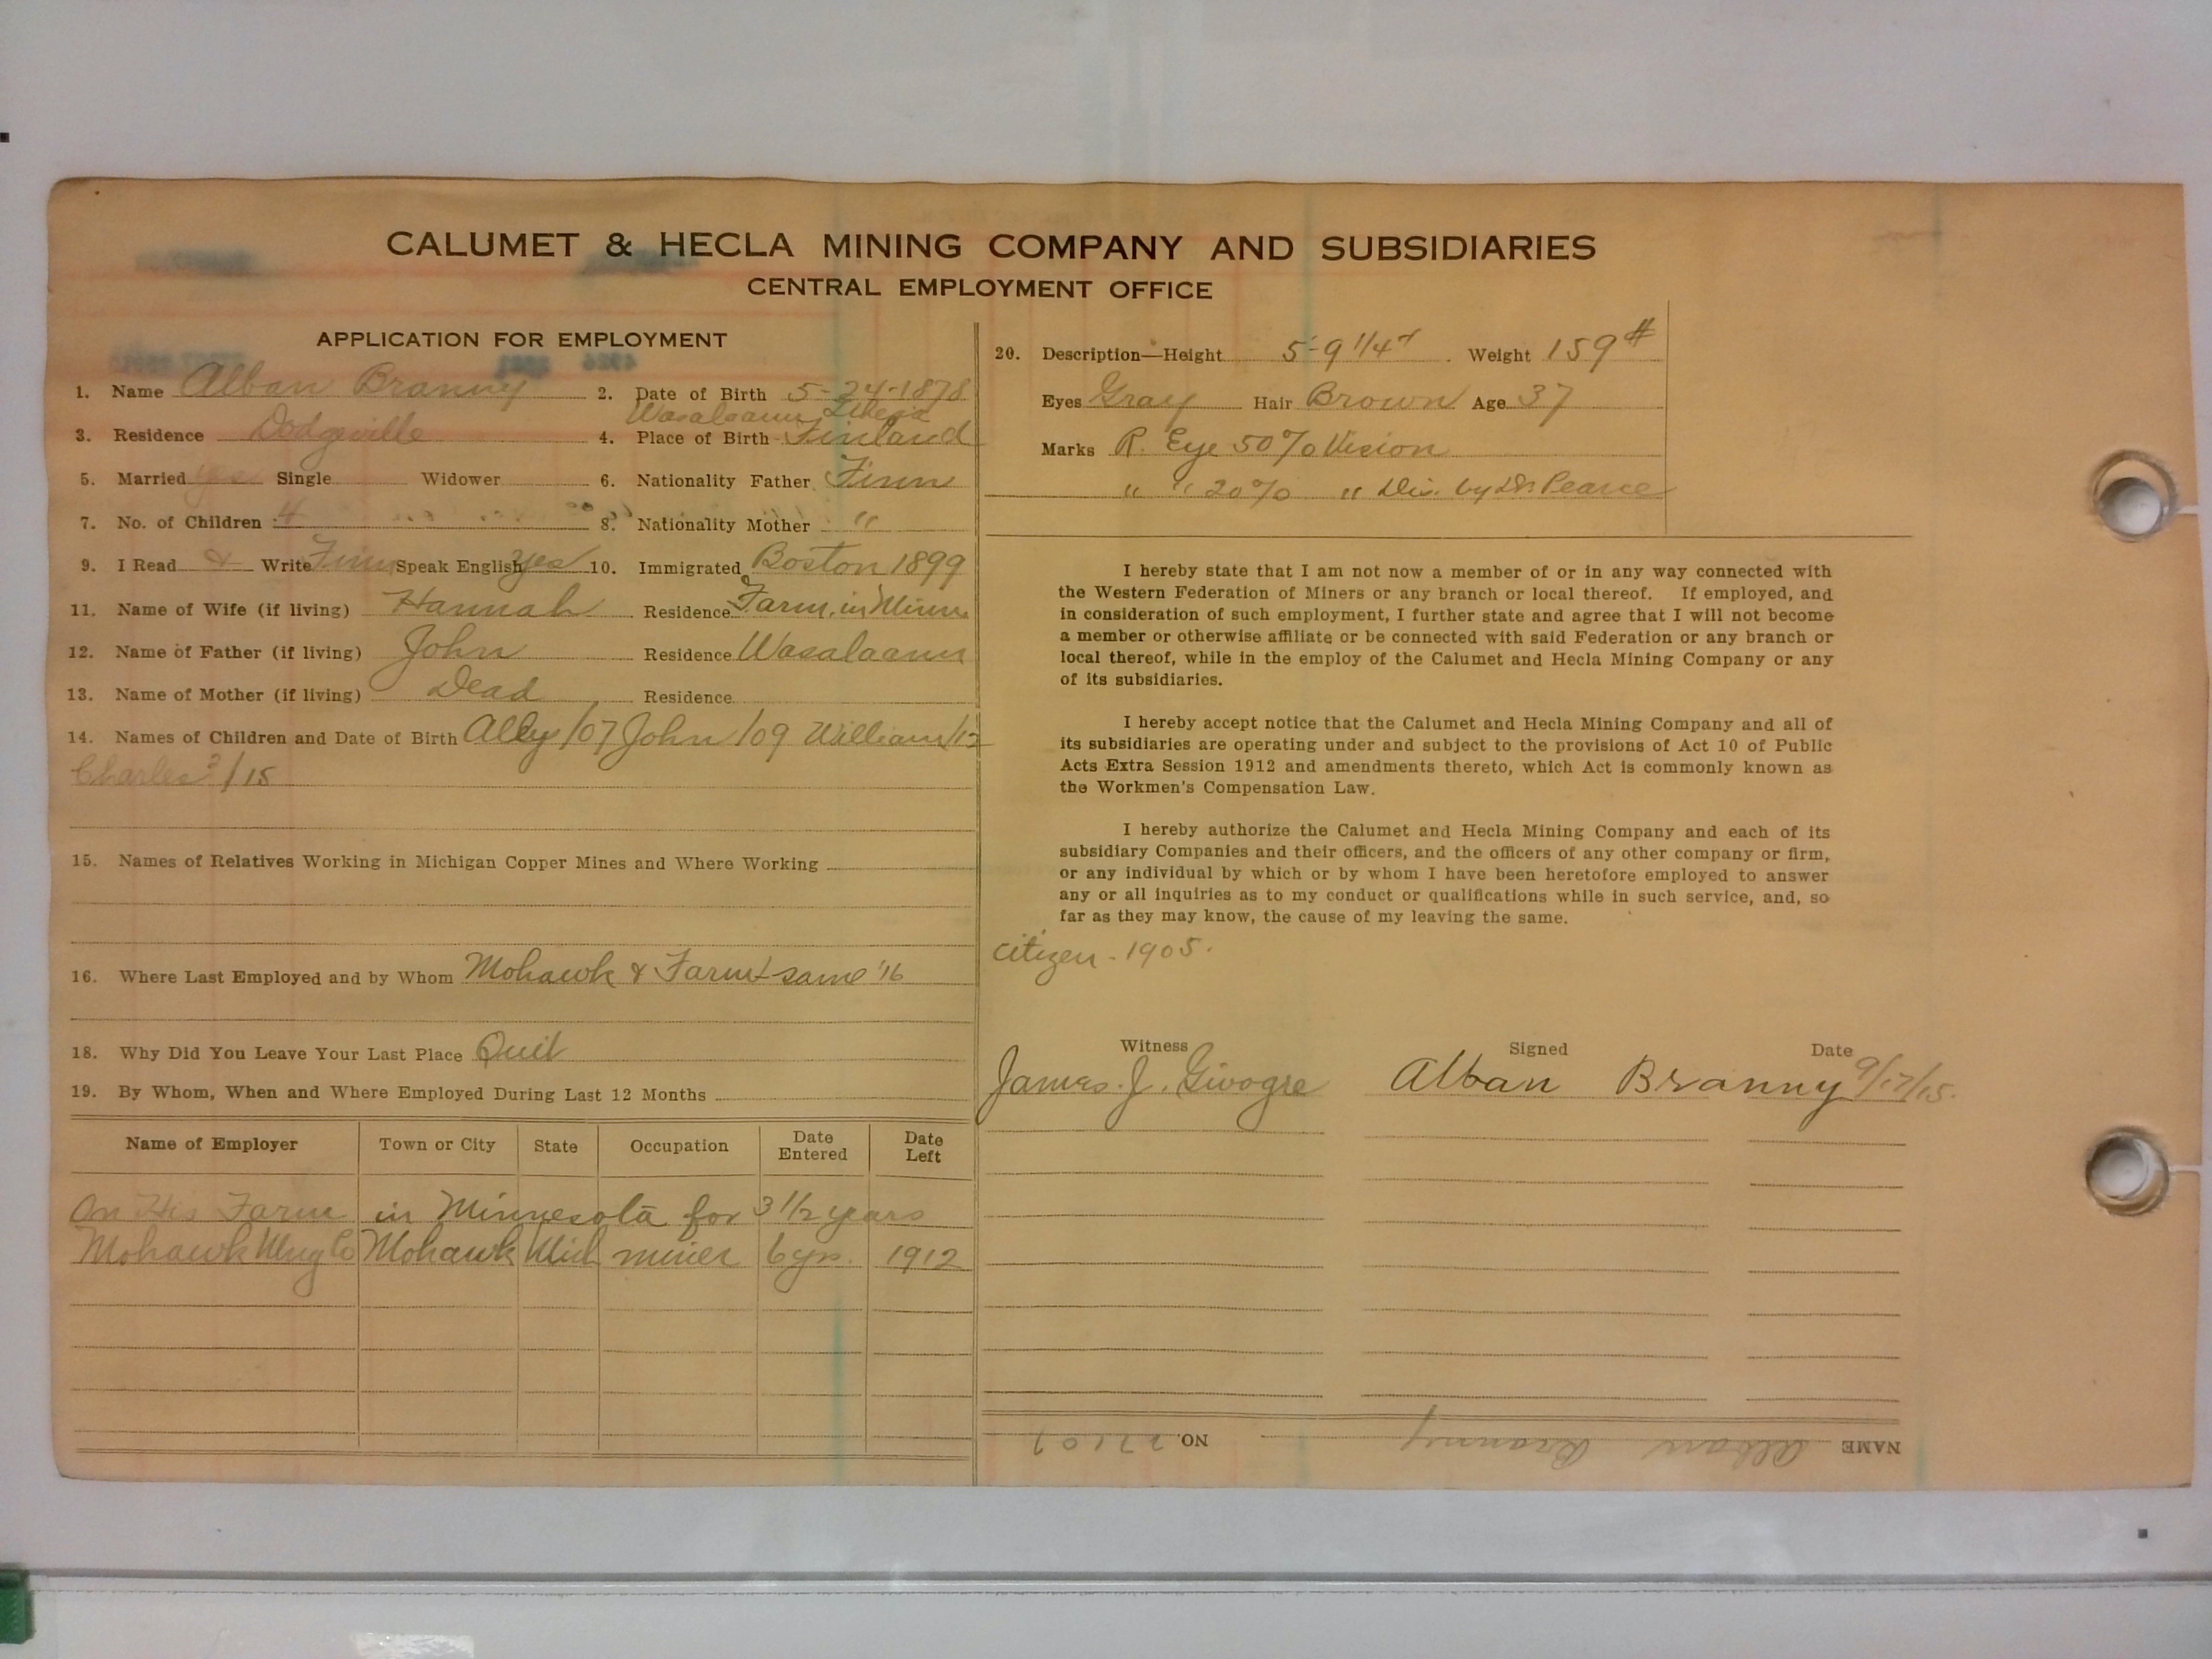 CALUMET & HECLA MINING COMPANY AND SUBSIDIARIES
CENTRAL EMPLOYMENT OFFICE
APPLICATION FOR EMPLOYMENT
1. Name Alban Branny 2. Date of Birth 5-24-1878
Wasalaann
3. Residence Dodgeville 4. Place of Birth Finland
5. Married yes Single Widower 6. Nationality Father Finn
7. No. of Children 4 8. Nationality Mother "
9. I Read & Write Finn Speak English yes 10. Immigrated Boston 1899
11. Name of Wife (if living) Hannah Residence Farm in Minn
12. Name of Father (if living) John Residence Wasalaann
13. Name of Mother (if living) Dead Residence
14. Names of Children and Date of Birth Ally /07 John /09 William /12
Charles 3/15
15. Names of Relatives Working in Michigan Copper Mines and Where Working
16. Where Last Employed and by Whom Mohawk & Farm + same '16
18. Why Did You Leave Your Last Place Quit
19. By Whom, When and Where Employed During Last 12 Months
Name of Employer Town or City State Occupation Date Entered Date Left
On His Farm in Minnesota for 3 1/2 years
Mohawk Mng Co Mohawk Mich miner 6 yrs. 1912
20. Description—Height 5-9 1/4 Weight 159 #
Eyes Gray Hair Brown Age 37
Marks R. Eye 50% Vision
" " 20% " Dis. by Dr. Pearce
I hereby state that I am not now a member of or in any way connected with
the Western Federation of Miners or any branch or local thereof. If employed, and
in consideration of such employment, I further state and agree that I will not become
a member or otherwise affiliate or be connected with said Federation or any branch or
local thereof, while in the employ of the Calumet and Hecla Mining Company or any
of its subsidiaries.
I hereby accept notice that the Calumet and Hecla Mining Company and all of
its subsidiaries are operating under and subject to the provisions of Act 10 of Public
Acts Extra Session 1912 and amendments thereto, which Act is commonly known as
the Workmen's Compensation Law.
I hereby authorize the Calumet and Hecla Mining Company and each of its
subsidiary Companies and their officers, and the officers of any other company or firm,
or any individual by which or by whom I have been heretofore employed to answer
any or all inquiries as to my conduct or qualifications while in such service, and, so
far as they may know, the cause of my leaving the same.
citizen - 1905.
Witness Signed Date
James J. Givogre Alban Branny 9/17/15.
NAME Alban Branny NO. 27107